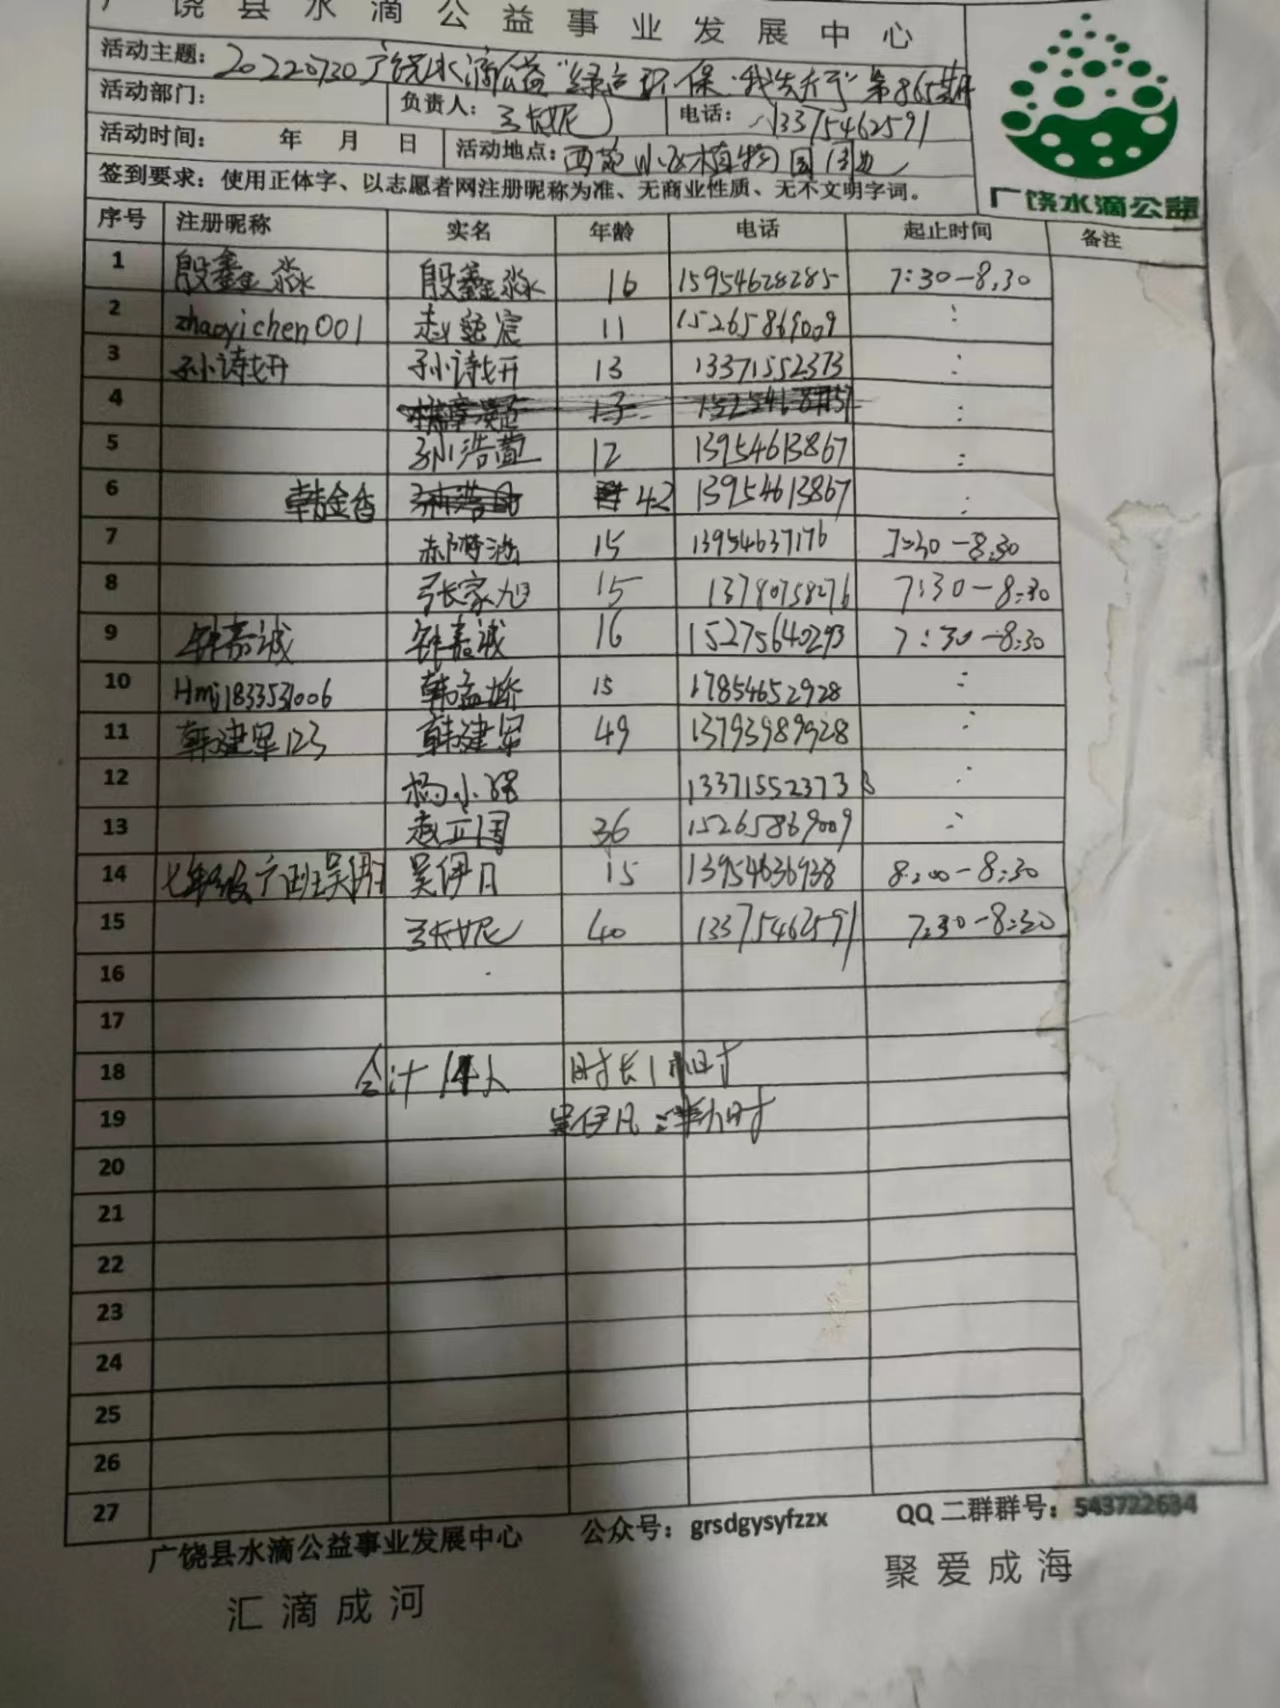 广饶县水滴公益事业发展中心
活动主题：20220730广饶水滴公益“绿色环保·我先行”第865期
活动部门： 负责人：王长妮 电话：13375462591
活动时间： 年 月 日 活动地点：西苑小区植物园周边
签到要求：使用正体字、以志愿者网注册昵称为准、无商业性质、无不文明字词。
广饶水滴公益
序号 注册昵称 实名 年龄 电话 起止时间 备注
1 殷鑫淼 殷鑫淼 16 15954628285 7:30-8:30
2 zhaoyichen001 赵 宸 11 15265869009 :
3 孙诗妍 孙诗妍 13 13371552373 :
4 :
5 孙浩萱 12 13954613867 :
6 韩金香 42 13954613867 :
7 15 13954637176 7:30-8:30
8 张家旭 15 13780758276 7:30-8:30
9 钟嘉诚 钟嘉诚 16 15275640293 7:30-8:30
10 Hmj1833531006 韩孟 15 17854652928 :
11 韩建军123 韩建军 49 13793989928 :
12 杨小 13371552373 :
13 赵立国 36 15265869009 :
14 七年级 吴伊凡 15 13954636938 8:00-8:30
15 王长妮 40 13375462591 7:30-8:30
16
17
18 合计14人 时长1小时
19 吴伊凡：半小时
20
21
22
23
24
25
26
27
广饶县水滴公益事业发展中心 公众号：grsdgysyfzzx QQ二群群号：543722634
汇滴成河 聚爱成海